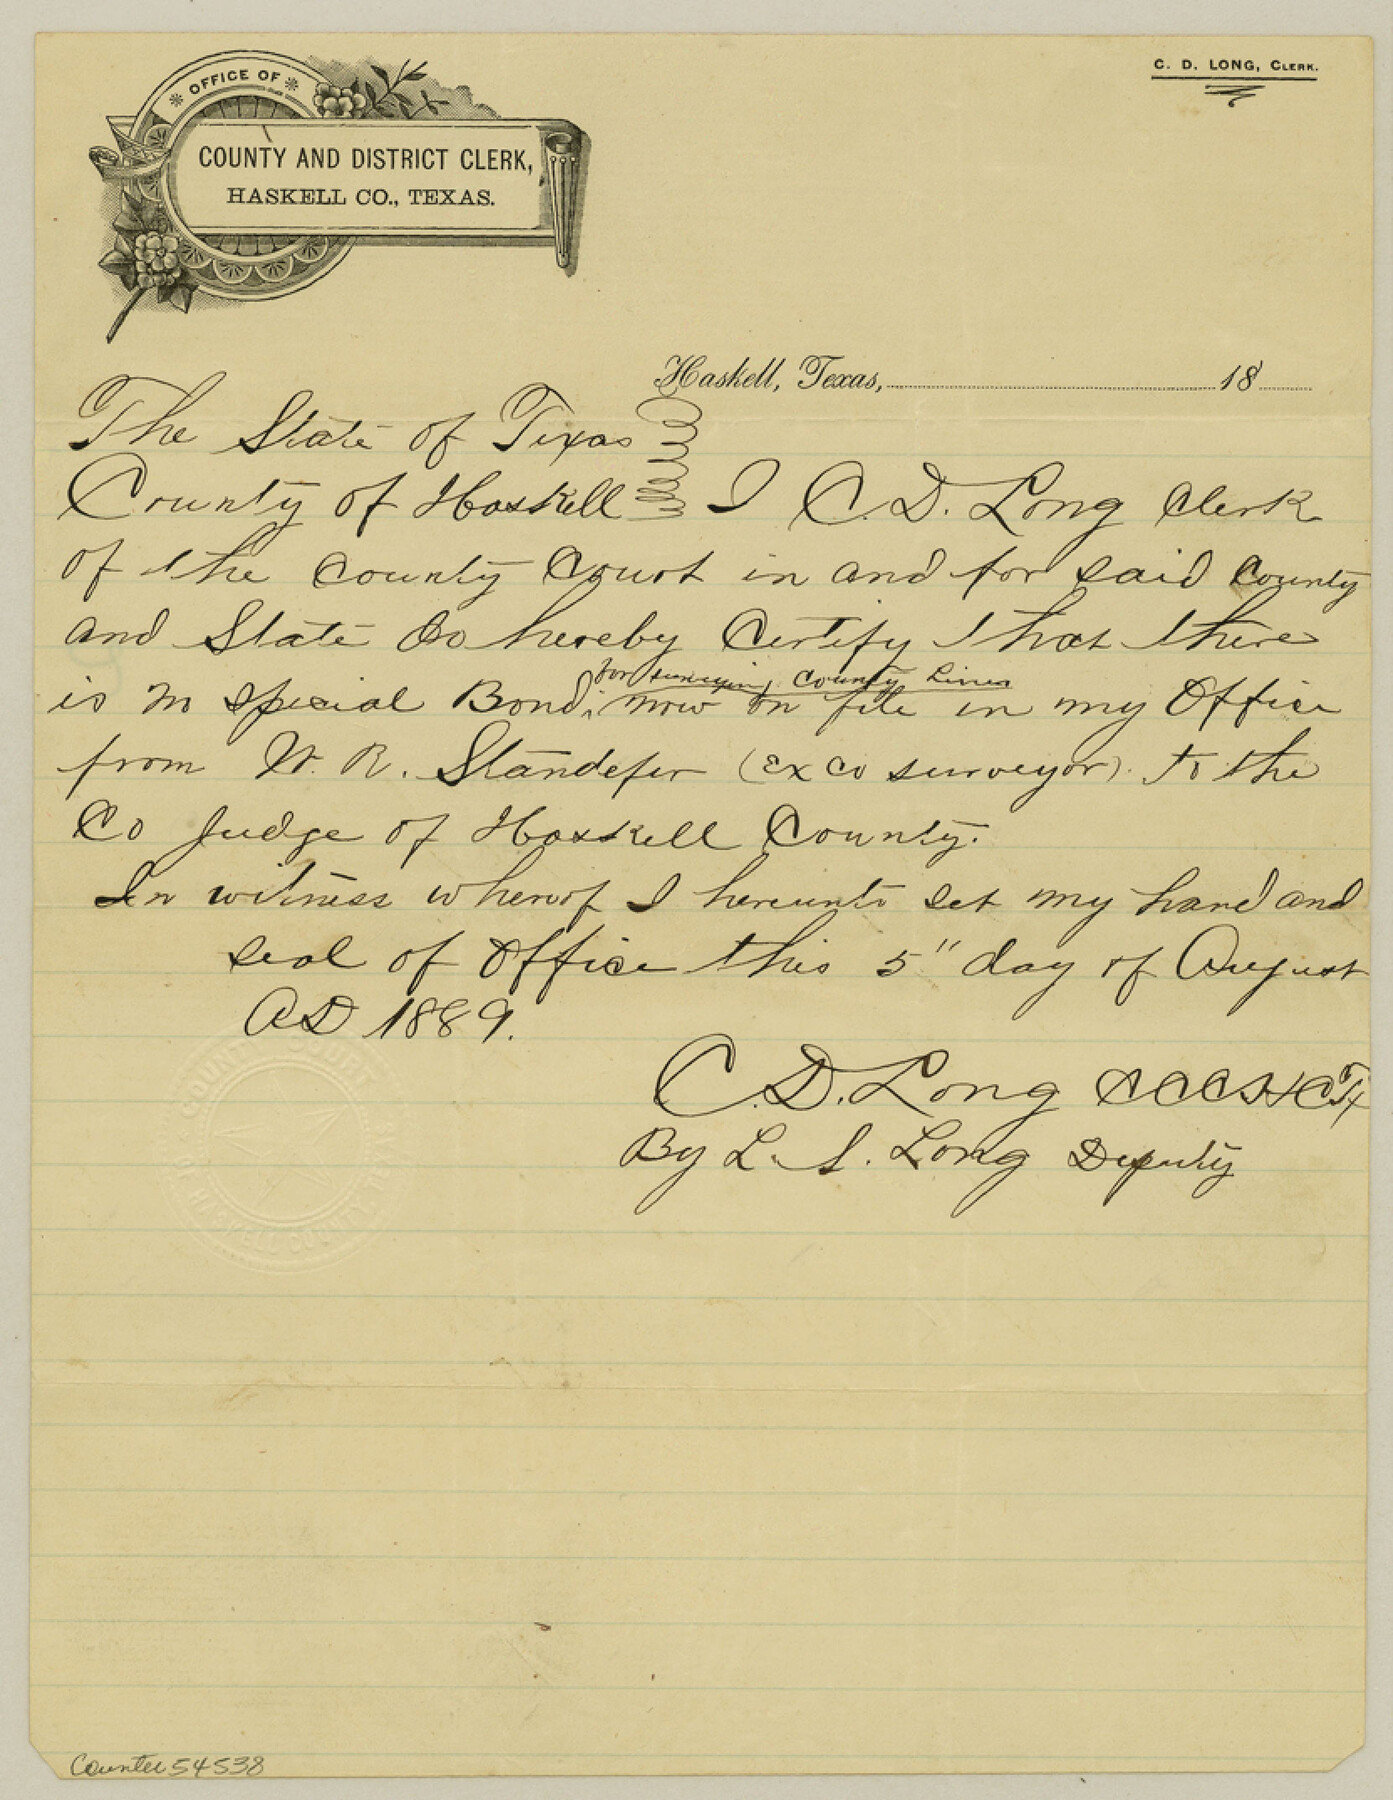 OFFICE OF
COUNTY AND DISTRICT CLERK,
HASKELL CO., TEXAS.
C. D. LONG, CLERK.
Haskell, Texas, 18
The State of Texas
County of Haskell I C. D. Long Clerk
of the County Court in and for said County
and State do hereby Certify that there
for surveying County Lines
is no special Bond, now on file in my Office
from W. R. Standefer (Ex Co surveyor) to the
Co Judge of Haskell County.
In witness whereof I hereunto set my hand and
seal of Office this 5" day of August
AD 1889.
C. D. Long CCCHCTx
By L. S. Long Deputy
COUNTY COURT
OF HASKELL COUNTY
Counter 54538